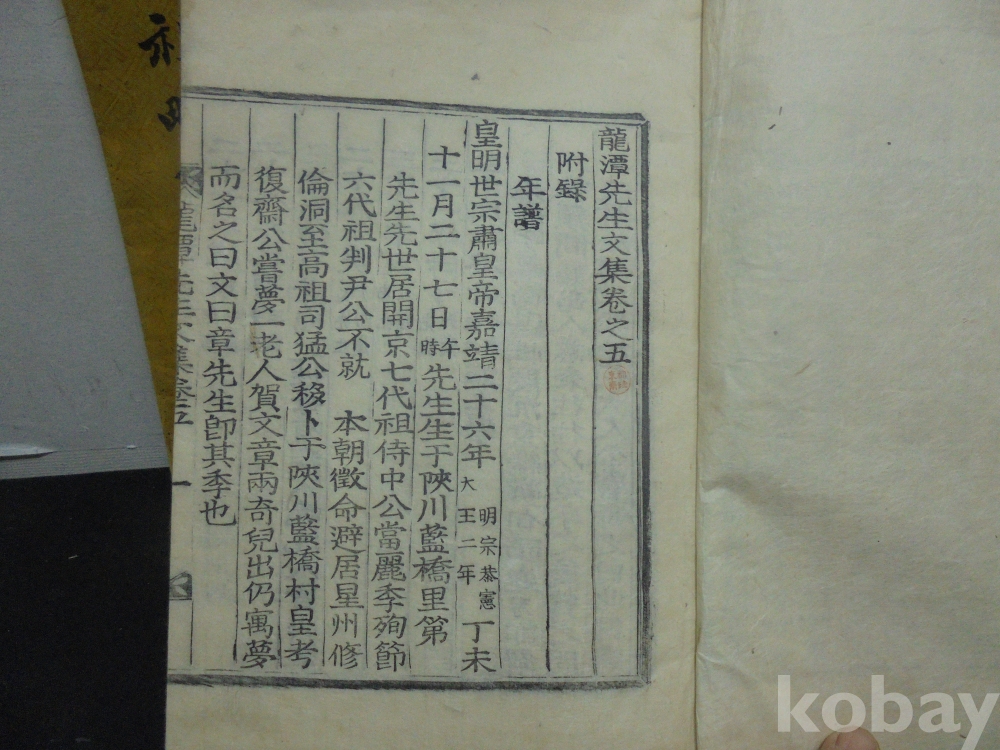 龍潭先生文集卷之五
附錄
年譜
皇明世宗肅皇帝嘉靖二十六年 明宗恭憲大王二年 丁未
十一月二十七日午時先生生于陜川藍橋里第
先生先世居開京七代祖侍中公當麗季殉節
六代祖判尹公不就 本朝徵命避居星州修
倫洞至高祖司猛公移卜于陜川藍橋村皇考
復齋公嘗夢一老人賀文章兩奇兒出仍寓夢
而名之曰文曰章先生卽其季也
龍潭先生文集卷五 一
kobay